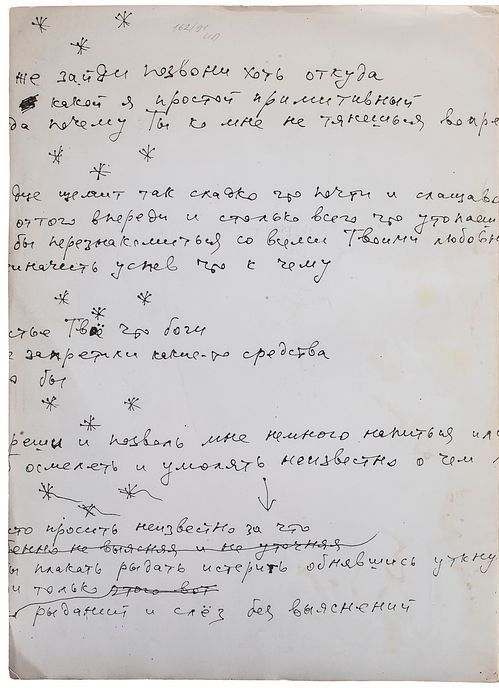 162/91
же зайди позвони хоть откуда
какой я простой примитивный
да почему Ты ко мне не тянешься вопре
дце щемит так сладко что почти и слащаво
оттого впереди и столько всего что утопаеш
бы перезнакомиться со всеми Твоими любовн
иначить успев что к чему
стье Твоё что боги
запретили какие-то средства
о бы
реши и позволь мне немного напиться или
осмелеть и умолять неизвестно о чем
сто просить неизвестно за что
енно не выясняя и не уточняя
ы плакать рыдать истерить обнявшись уткну
и только этого вот
рыданий и слёз без выяснений